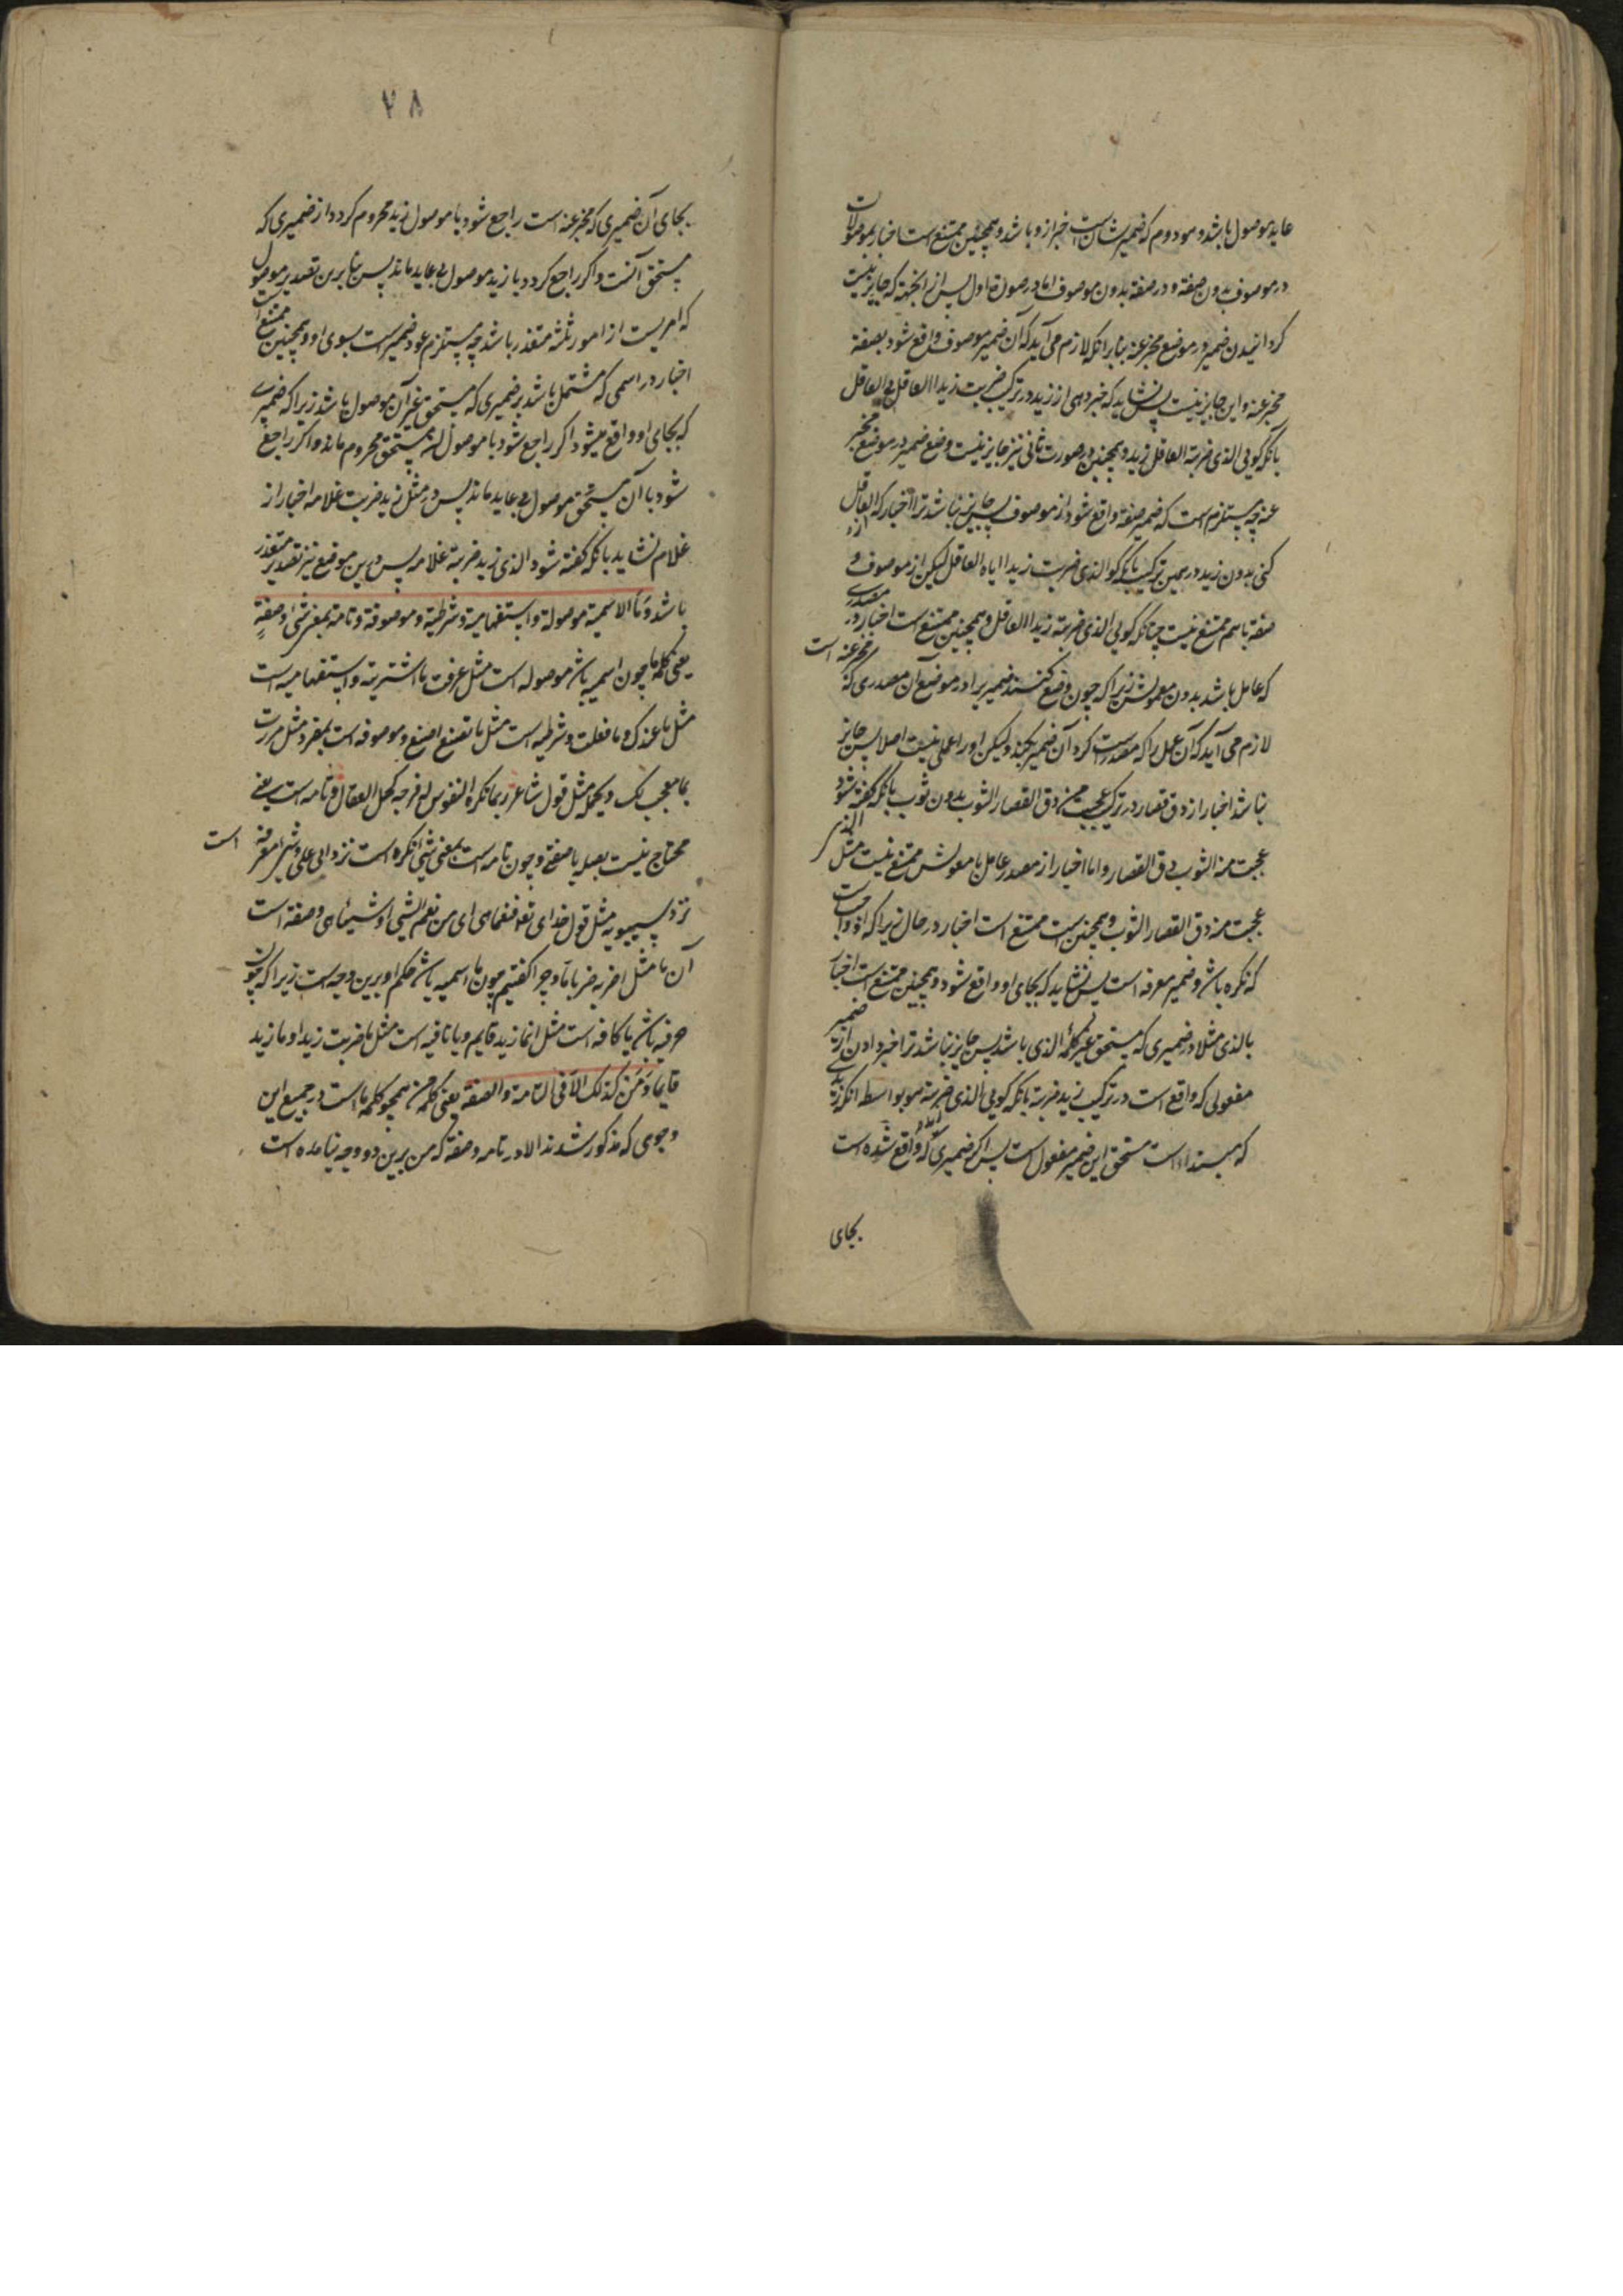 عاید موصول باشد و مو دوم که ضمیر شانست خبر ازو باشد و همچنین ممتنع است اخبار بموصولات
در موصوف بدون صفة و در صفة بدون موصوف اما در صورة اول پس از انجهة که جایز نیست
کردانیدن ضمیر در موضع مخبر عنه بنابرانکه لازم می آید که آن ضمیر موصوف واقع شود بصفة
مخبر عنه و این جایز نیست پس نشاید که خبر دهی از زید در ترکیب ضربت زیدا العاقل بی العاقل
بانکه کویی الذی ضربته العاقل زید و همچنین در صورت ثانی نیز جایز نیست وضع ضمیر در موضع مخبر
عنه چه مستلزم است که ضمیر صفة واقع شود از موصوف پس جایز نباشد ترا اخبار که از العاقل
کنی بدون زید در همین ترکیب بانکه کو الذی ضربت زیدا ایاه العاقل لیکن از موصوف و
صفة باهم ممتنع نیست چنانکه کویی الذی ضربته زیدا العاقل و همچنین ممتنع است اخبار در مصدری
که عامل باشد بدون معمولش زیرا که چون وضع کنند ضمیر را در موضع آن مصدری که مخبر عنه است
لازم می آید که آن عمل را که مصدر است کرد آن ضمیر بکند ولیکن اورا عملی نیست اصلا پس جایز
نباشد اخبار از دق قصار در ترکیب عجبت من دق القصار الثوب بدون ثوب بانکه کفته شود الذی
عجبت منه الثوب دق القصار و اما اخبار از مصدر عامل با معمولش ممتنع نیست مثل
عجبت منه دق القصار الثوب و همچنین است ممتنع است اخبار در حال زیرا که او واجبست
که نکره باشد و ضمیر معرفه است پس نشاید که بجای او واقع شود و همچنین ممتنع است اخبار
بالذی مثلا در ضمیری که مستحق غیر کلمه الذی باشد پس جایز نباشد ترا خبر دادن از ضمیر
مفعولی که واقع است در ترکیب زید ضربته بانکه کویی الذی زید ضربته هو بواسطه انکه زید
که مبتدا است مستحق این ضمیر مفعول است پس اکر ضمیری که واقع شده است
بجای
۷۸
بجای آن ضمیری که مخبر عنه است راجع شود با موصول زید محروم کردد از ضمیری که
مستحق آنست و اکر راجع کردد با زید موصول بی عاید ماند پس بنابرین تصدیر موصول
که امریست از امور ثلثه متعذر باشد چه مستلزم عود ضمیر است بسوی او و همچنین ممتنع است
اخبار در اسمی که مشتمل باشد بر ضمیری که مستحق غیر آن موصول باشد زیرا که ضمیری
که بجای او واقع میشود اکر راجع شود با موصول آن مستحق محروم ماند و اکر راجع
شود با آن مستحق موصول بی عاید ماند پس در مثل زید ضربت غلامه اخبار از
غلام نشاید بانکه کفته شود الذی زید ضربته غلامه پس درین موضع نیز تصدیر متعذر
باشد و ما الاسمیة موصولة و استفهامیة و شرطیة و موصوفة و تامة بمعنی شئ و صفة
یعنی کلمه ما چون اسمیه باشد موصوله است مثل عرفت ما اشتریته و استفهامیه است
مثل ما عندک و ما فعلت و شرطیه است مثل ما تصنع اصنع و موصوفه است بمفرد مثل مررت
بما معجب لک و بجمله مثل قول شاعر ربما تکره النفوس له فرجة کحل العقال و تامه است یعنی
محتاج نیست بصله یا صفة و چون تامه است بمعنی شئ نکره است نزد ابی علی و شئ معرفه است
نزد سیبویه مثل قول خدای تعا فنعما هی ای من نعم الشئ او شیئا هی و صفة است
آن ما مثل اضربه ضربا ما و چرا کفتیم چون ما اسمیه باشد حکم او برین وجه است زیرا که چون
حرفیه باشد یا کافه است مثل انما زید قایم و یا نافیه است مثل ما ضربت زیدا و ما زید
قایما و من کذلک الا فی التامة و الصفة یعنی کلمه من همچو کلمه ما است در جمیع این
وجوهی که مذکور شدند الا در تامه و صفة که من برین دو وجه نیامده است